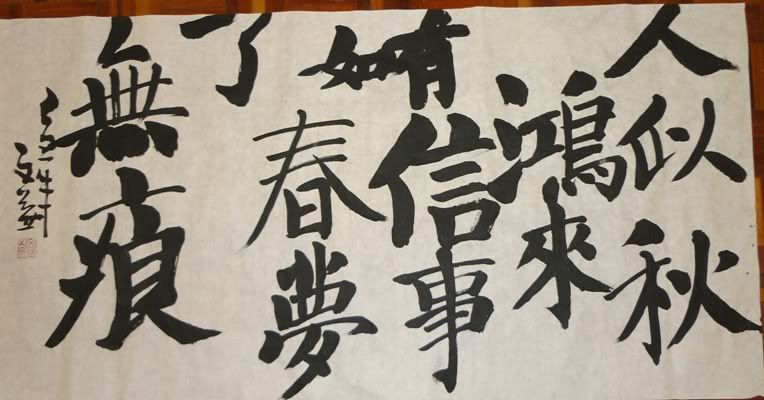 人似秋
鴻來
有信事
如春夢
了
無痕